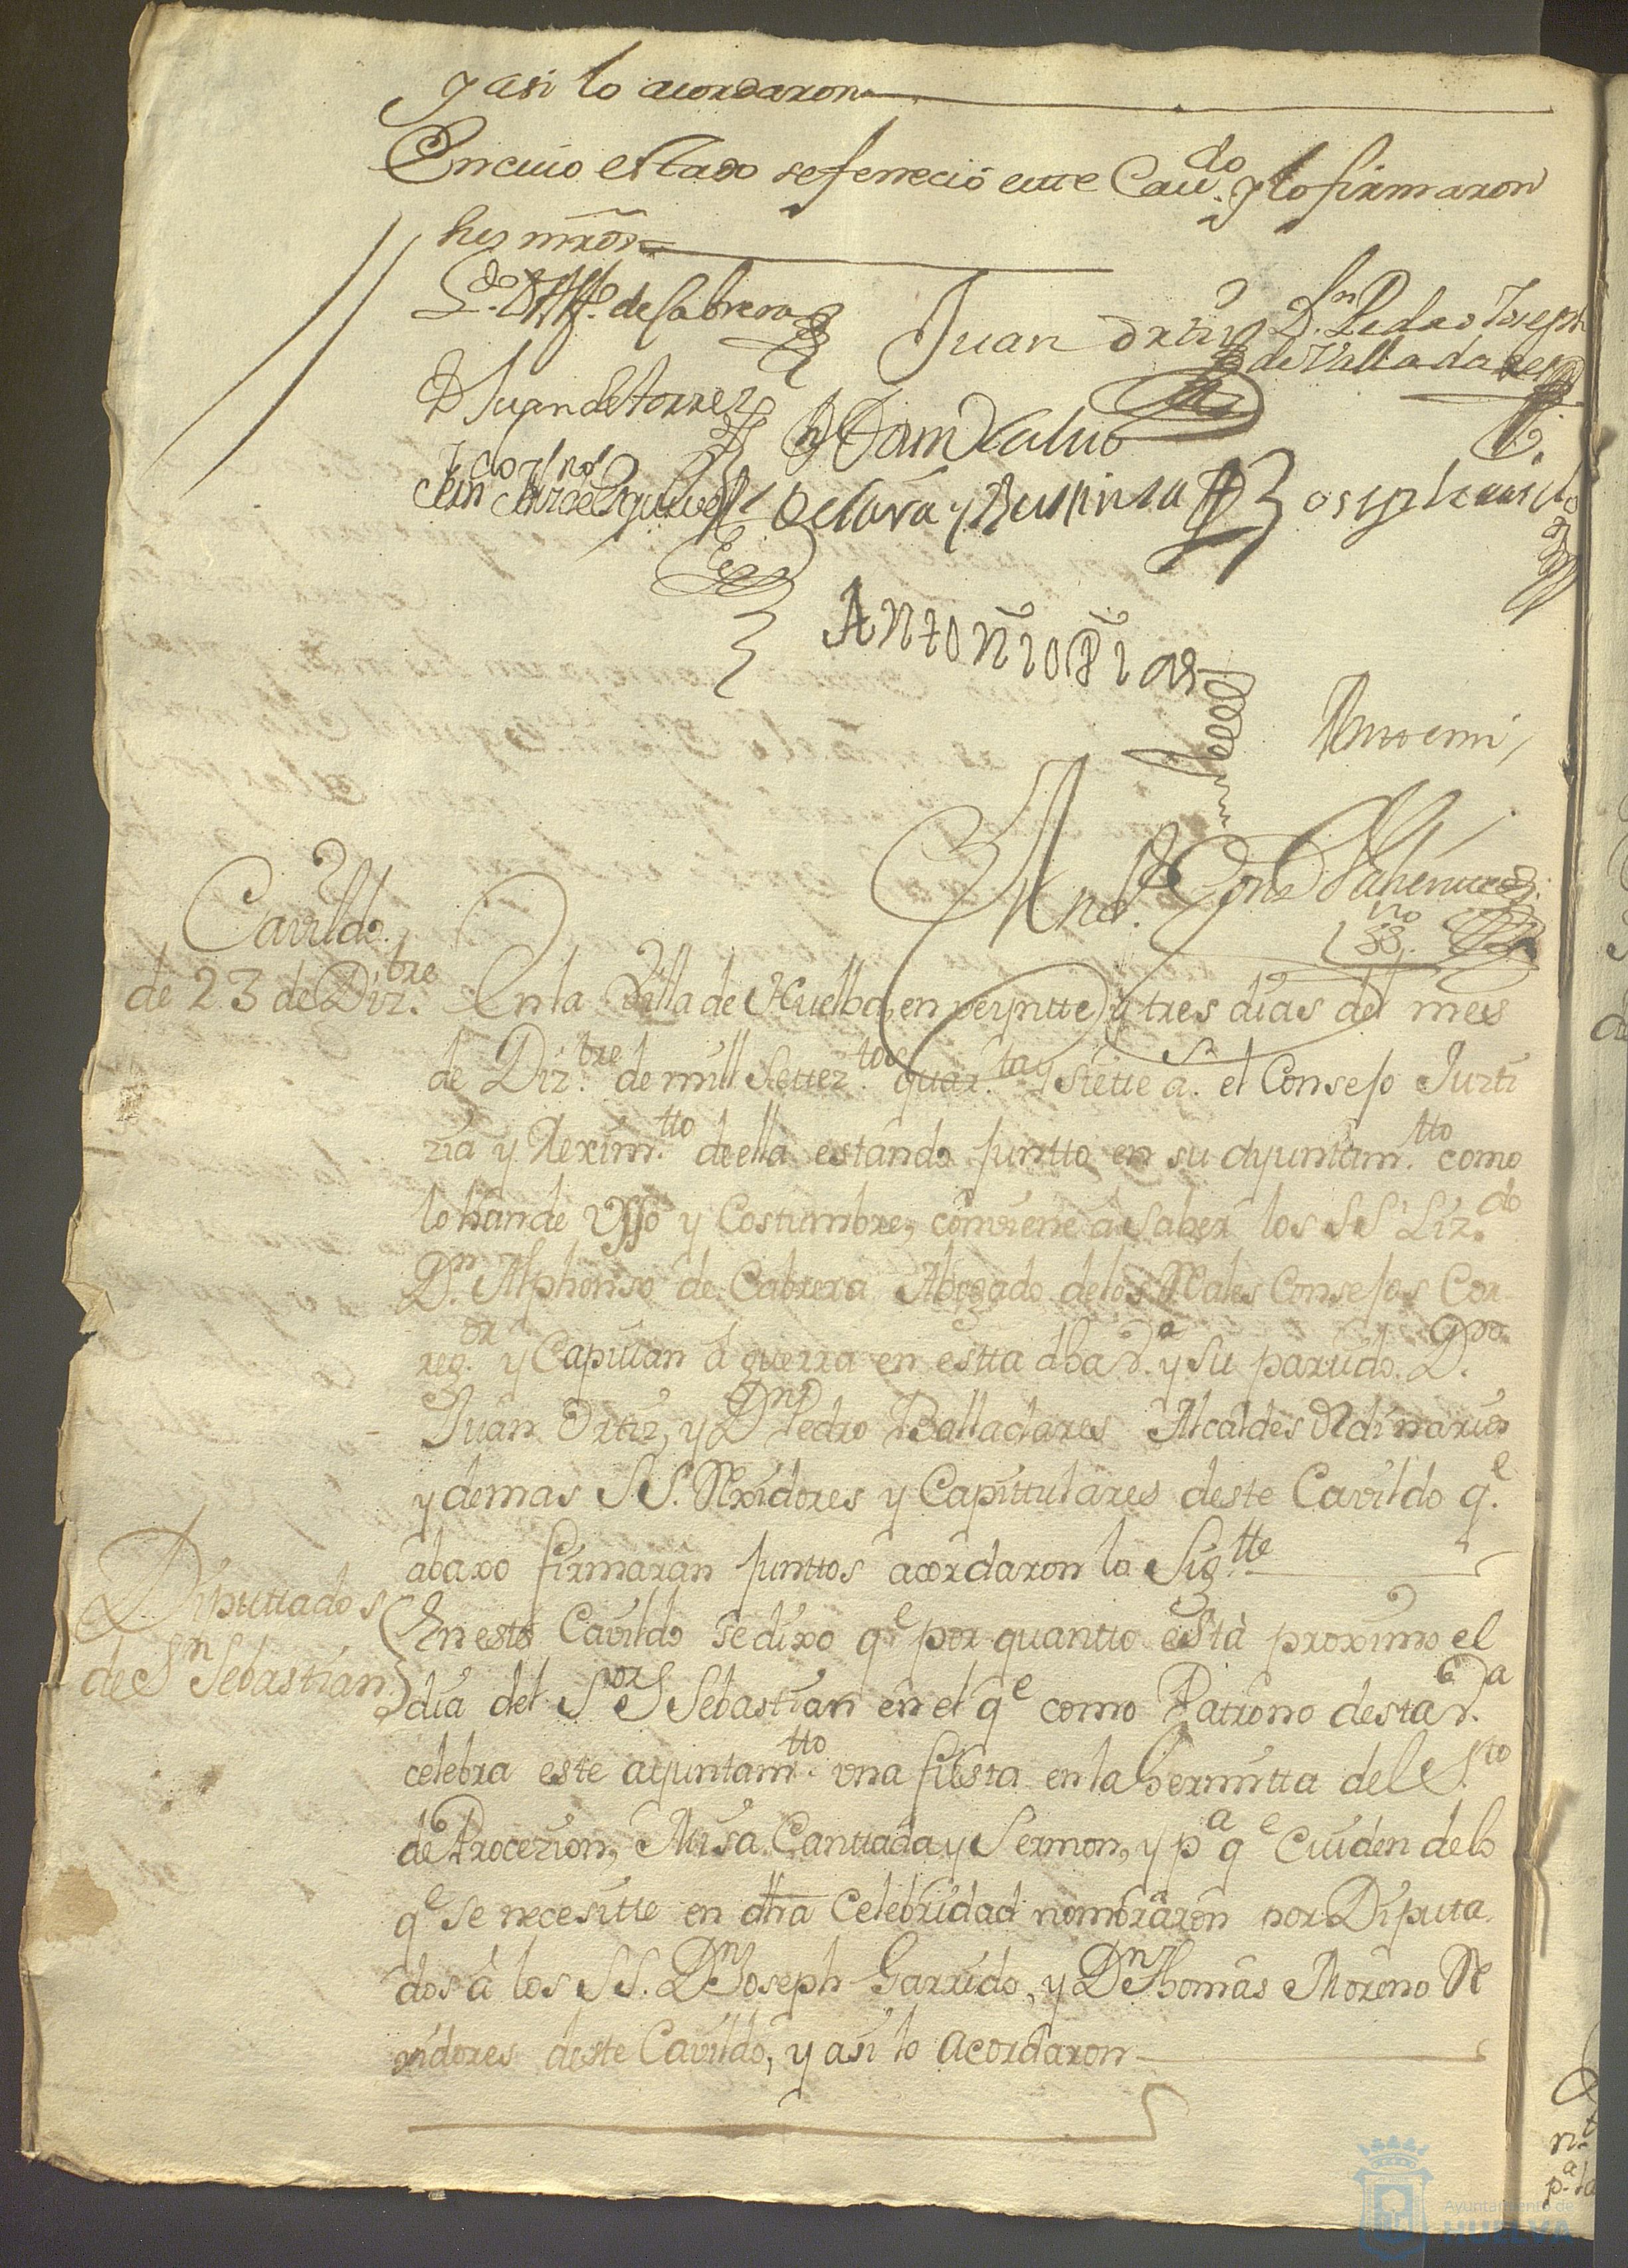 y asi lo acordaron
En cuio estado se fenecio este Cav.do y lo firmaron
sus mrds
L.do D. Alfo. de Cabrera
Juan Ortiz
D.n Pedro Joseph
de Valladares
D Juan de torres
Antonio Rias
Antte mi,
And.s Gonz
ss.no
Cavildo
de 23 de Diz.bre
En la Villa de Huelba, en veyntte y tres dias del mes
de Diz.bre de mill settez.tos quar.ta y siette a.s el Consejo Justi
zia y Rexim.tto de ella estando juntto en su ayuntam.tto como
lo han de Vsso y Costumbre, conviene a saber los SS.s Liz.do
D.n Alphonso de Cabrera Abogado de los Rales Consejos Cor
reg.or y Capitan à guerra en estta dha V.a y su partido. D.n
Juan Ortiz, y D.n Pedro Balladares Alcaldes Ordinarios
y demas SS. Rexidores y Capittulares deste Cavildo q.e
abaxo firmaran junttos acordaron lo Sig.tte
Diputtados
de S.n Sebastian
En este Cavildo se dixo q.e por quantto està proximo el
dia del S.or S Sebastian en el q.e como Patrono desta V.a
celebra este ayuntam.tto vna fiesta en la hermitta del S.to
de Procezion, Misa Canttada y Sermon, y p.a q.e Cuiden de lo
q.e se necesitte en dha Celebridad nombraron por Diputa
dos à los SS. D.n Joseph Garrido, y D.n Thomas Moreno Re
xidores deste Cavildo, y asi lo acordaron
Ayuntamiento de
HUELVA